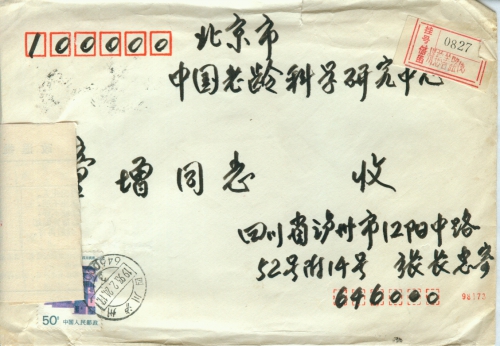 100000
北京市
中国老龄科学研究中心
挂号
0827
童增同志 收
四川省泸州市江阳中路
52号附14号 张长志寄
646000
50分 中国人民邮政
四川
泸州